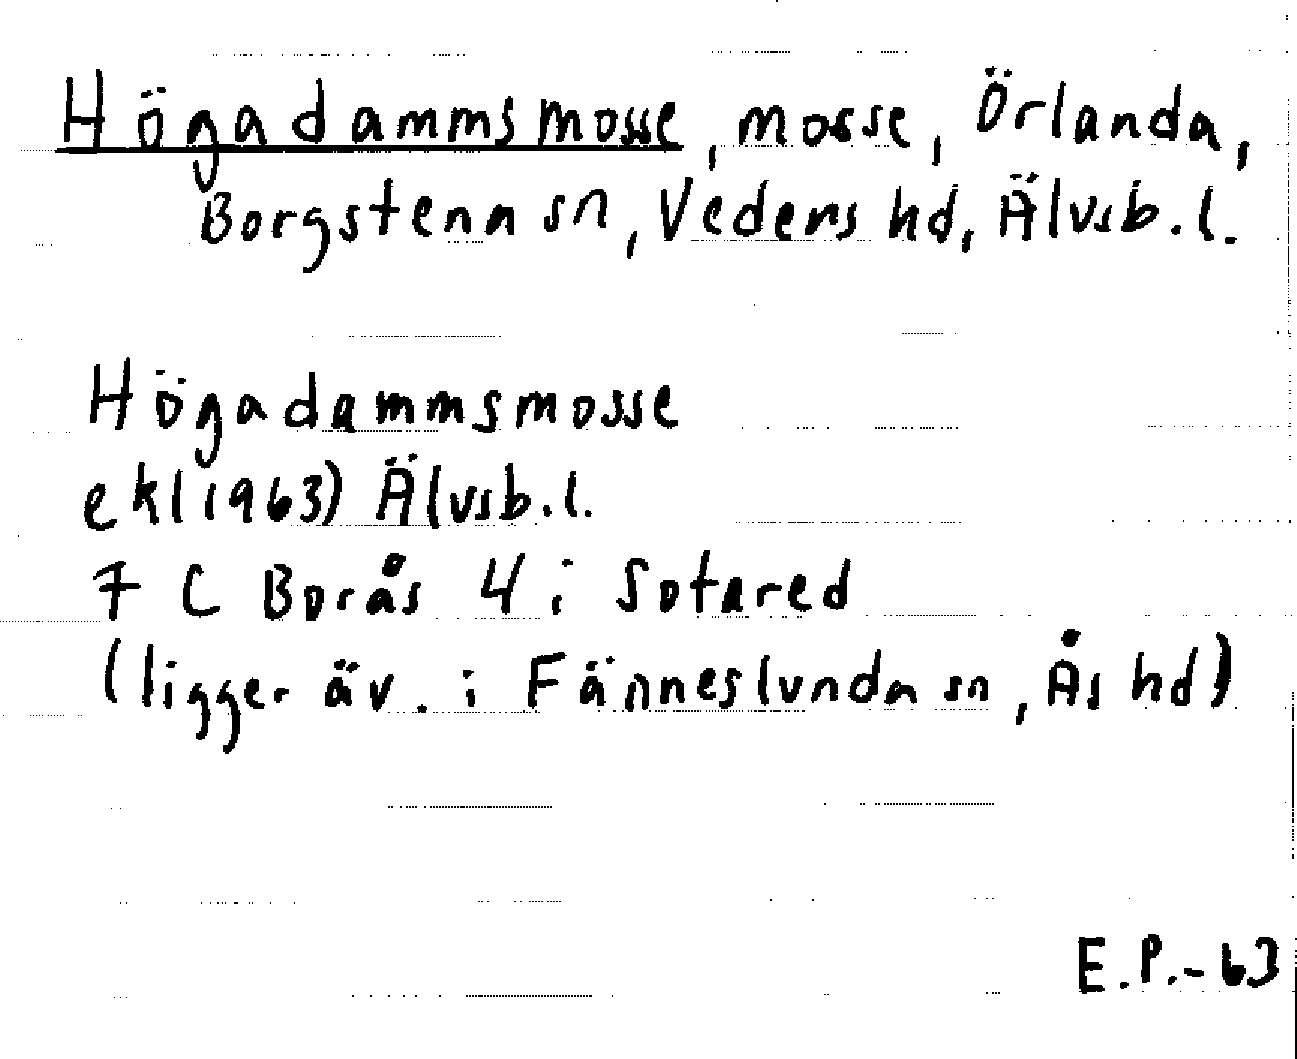 Högadammsmosse, mosse, Örlanda,
Borgstena sn, Vedens hd, Älvsb.l.
Högadammsmosse
ekl1963) Älvsb.l.
7 C Borås 4 i Sotared
(ligger äv. i Fänneslunda sn, Ås hd)
E.P.-63